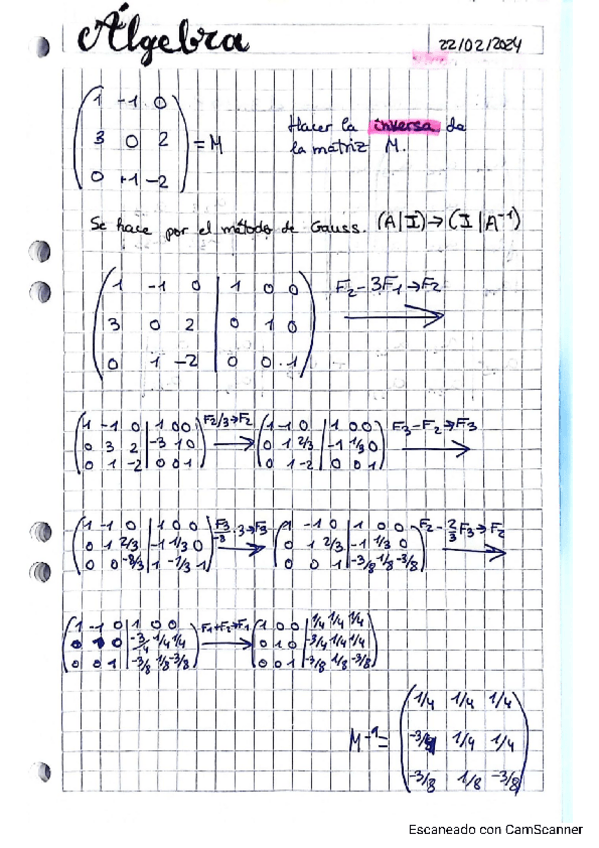 Álgebra
22/02/2024
1 -1 0
3 0 2 = M
0 +1 -2
Hacer la inversa de
la matriz M.
Se hace por el método de Gauss. (A|I) → (I|A⁻¹)
1 -1 0 | 1 0 0
3 0 2 | 0 1 0
0 1 -2 | 0 0 1
F₂ - 3F₁ → F₂
1 -1 0 | 1 0 0
0 3 2 | -3 1 0
0 1 -2 | 0 0 1
F₂/3 → F₂
1 -1 0 | 1 0 0
0 1 2/3 | -1 1/3 0
0 1 -2 | 0 0 1
F₃ - F₂ → F₃
1 -1 0 | 1 0 0
0 1 2/3 | -1 1/3 0
0 0 -8/3 | 1 -1/3 1
F₃/-8 · 3 → F₃
1 -1 0 | 1 0 0
0 1 2/3 | -1 1/3 0
0 0 1 | -3/8 1/8 -3/8
F₂ - 2/3 F₃ → F₂
1 -1 0 | 1 0 0
0 1 0 | -3/4 1/4 1/4
0 0 1 | -3/8 1/8 -3/8
F₁ + F₂ → F₁
1 0 0 | 1/4 1/4 1/4
0 1 0 | -3/4 1/4 1/4
0 0 1 | -3/8 1/8 -3/8
M⁻¹ =
1/4 1/4 1/4
-3/4 1/4 1/4
-3/8 1/8 -3/8
Escaneado con CamScanner